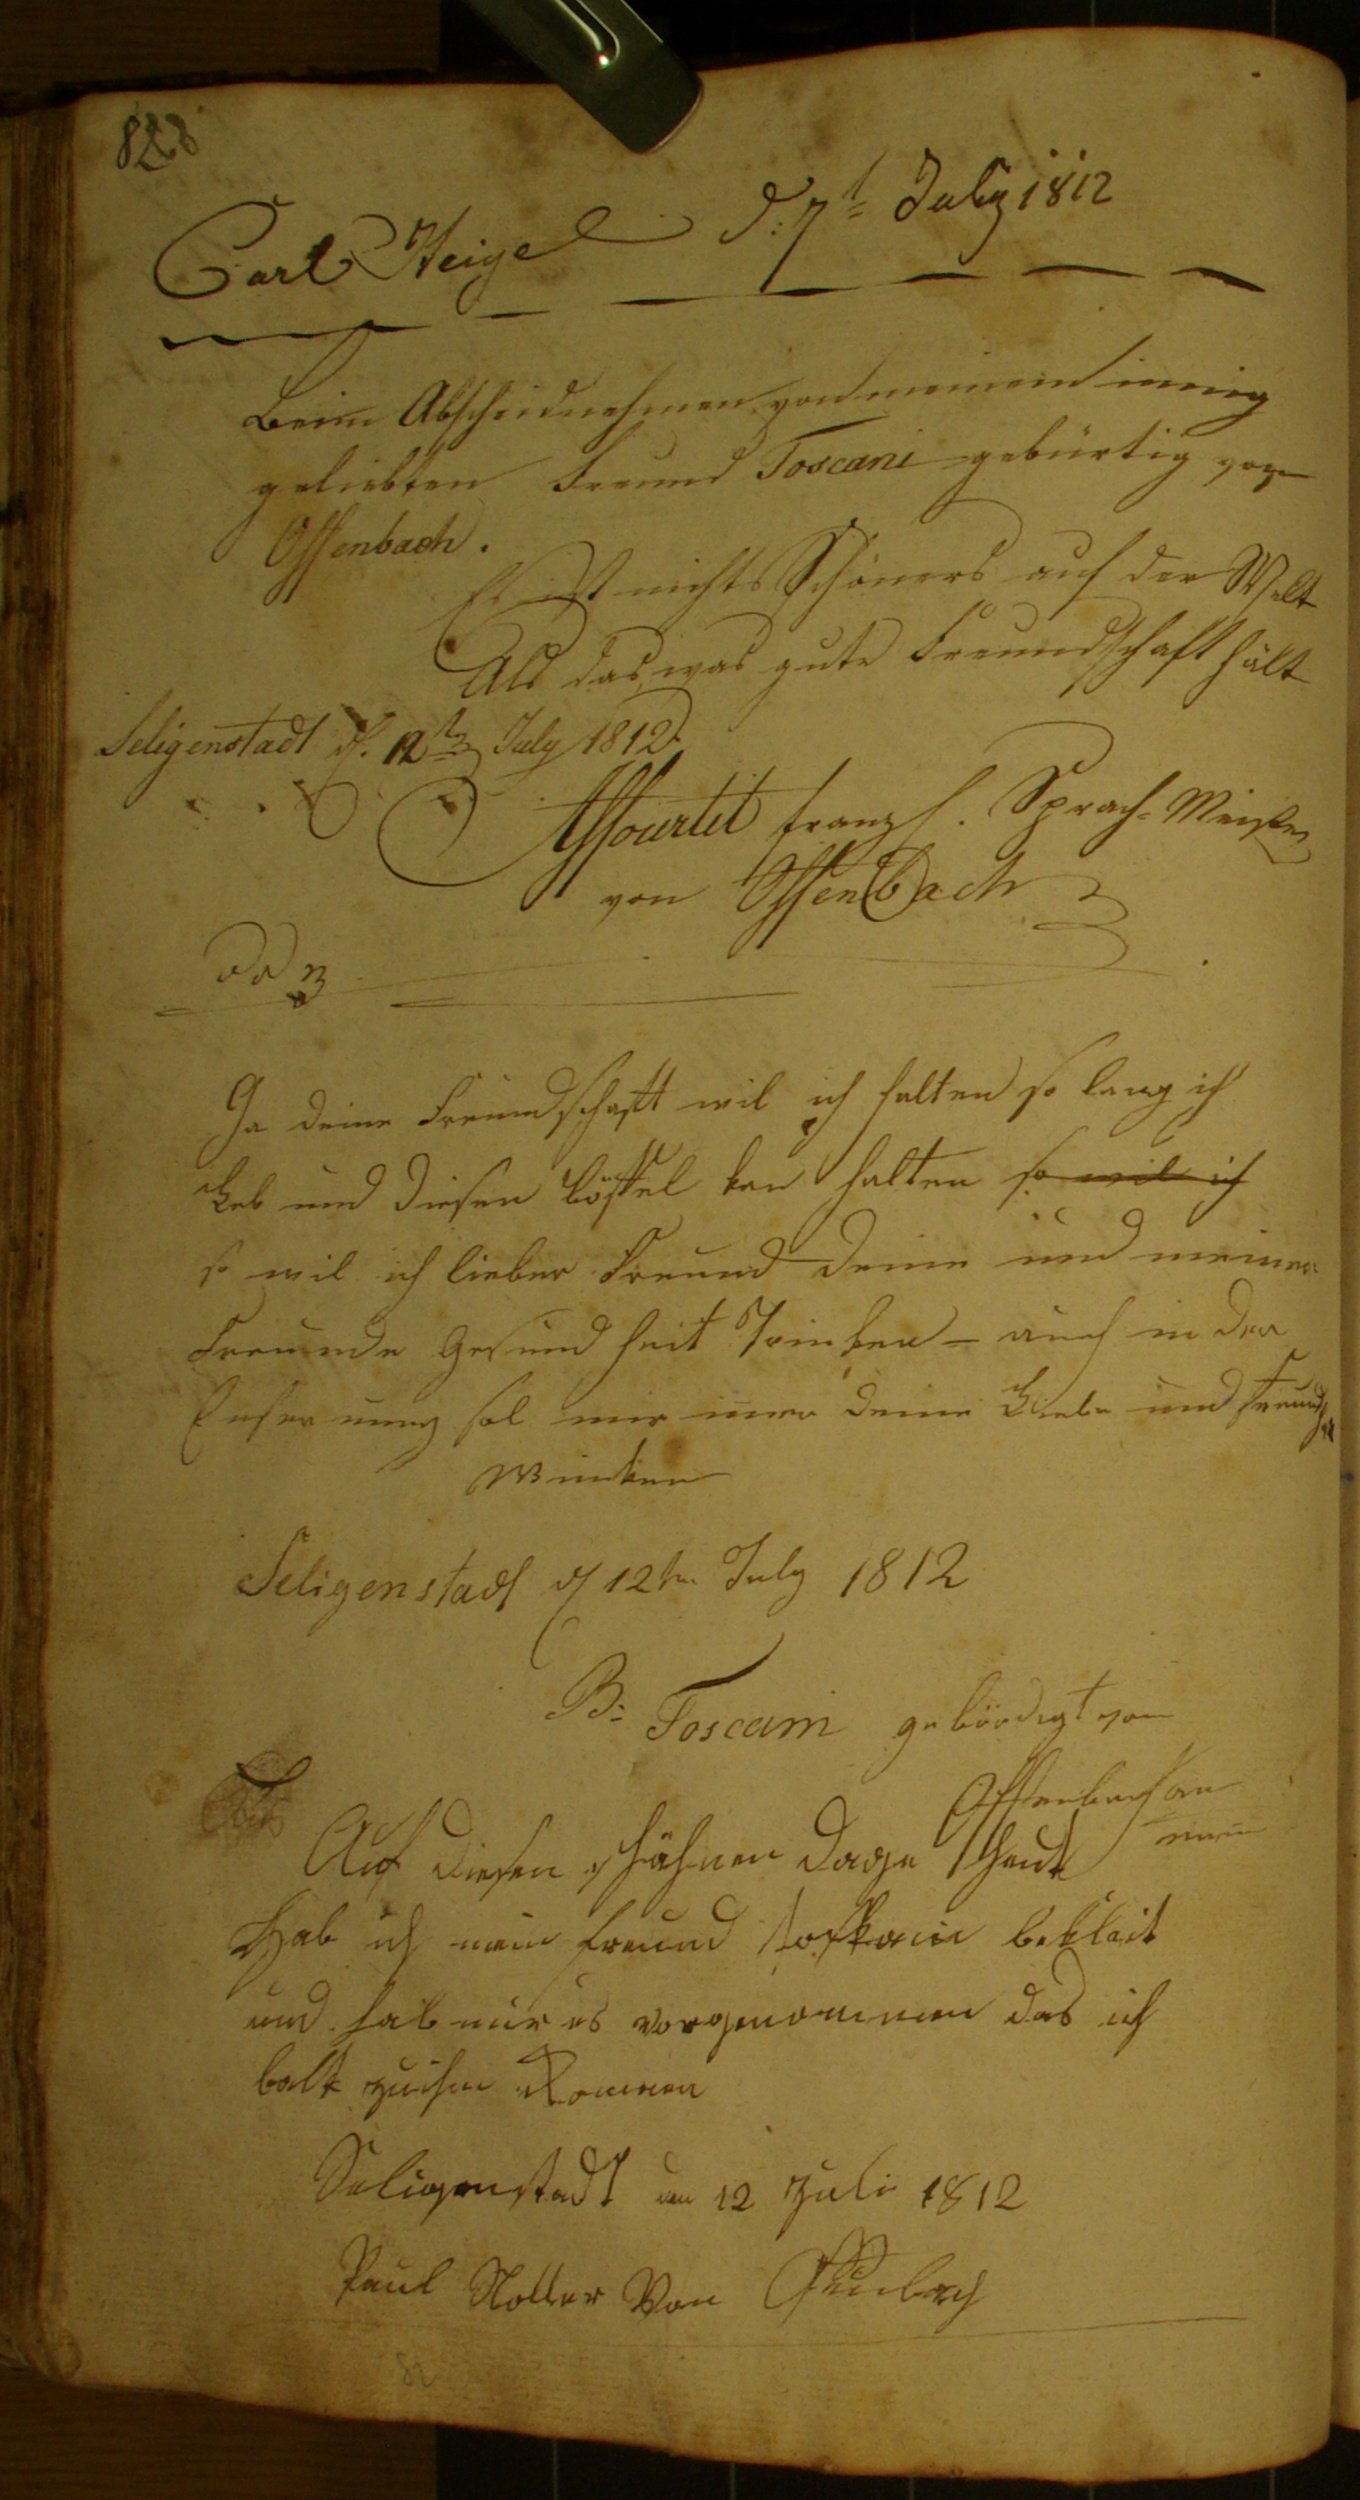 828
Carl Heigel d: 7t July 1812
Beim Abschiednehmen von meinem innig
geliebten Freund Toscani gebürtig von
Offenbach.
Es ist nichts Schöners auf der Welt
Als das, was gute Freundschaft hält
Seligenstadt d. 12ten July 1812.
franzs. Sprach-Meister
von Offenbach
Ja deine Freundschaft wil ich halten so lang ich
Leb und diesen Löffel kan halten so wil ich
so wil ich lieber Freund deine und meiner
Freunde Gesundheit Trinken – auch in der
sol mir imer deine Liebe und Freundsch
Winken
Seligenstadt d 12ten July 1812
B: Toscani gebördigt von
Offenbach am
main
Auf diesen schähnen Dage heut
Hab ich mein Freund toskani bekleit
und hab mir es vorgenommen das ich
balt zu ihm Kommen
Seligenstadt am 12 Juli 1812
Paul Noller Von Offenbach